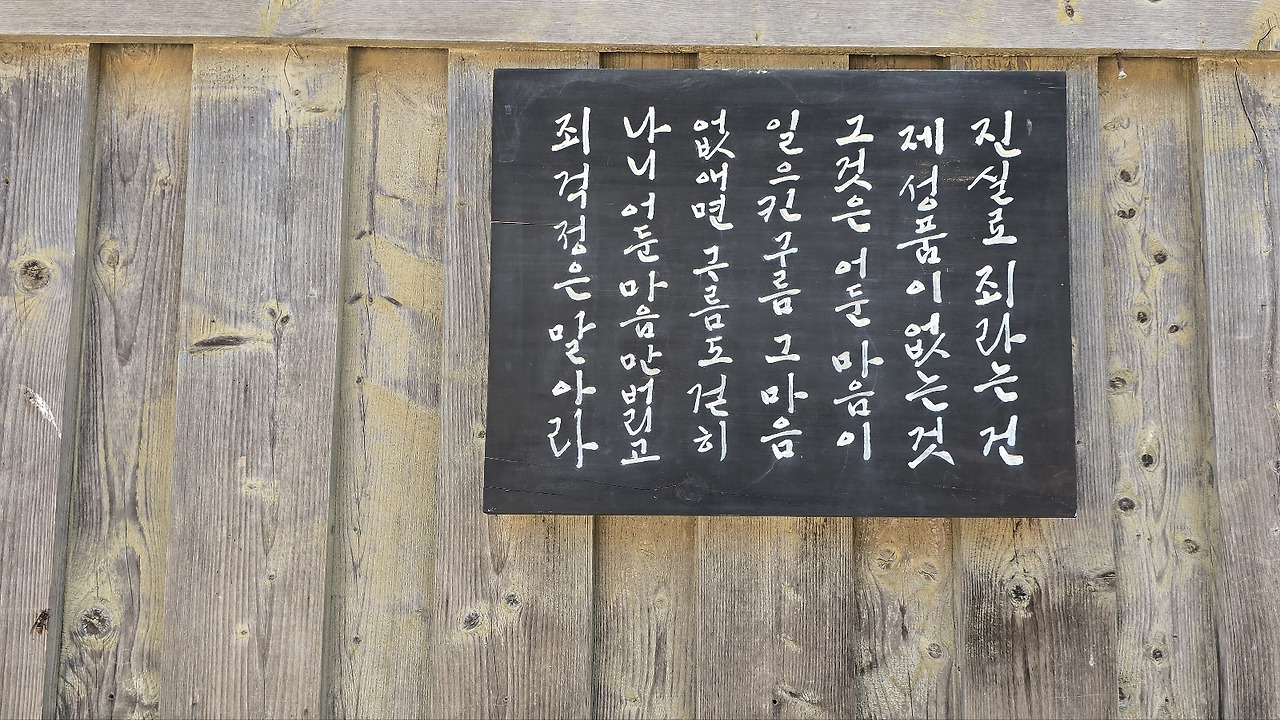 진실로 죄라는 건
제 성품이 없는 것
그것은 어둔 마음이
일은킨 구름 그 마음
없애면 구름도 걷히
나니 어둔 마음만 버리고
죄 걱정은 말아라